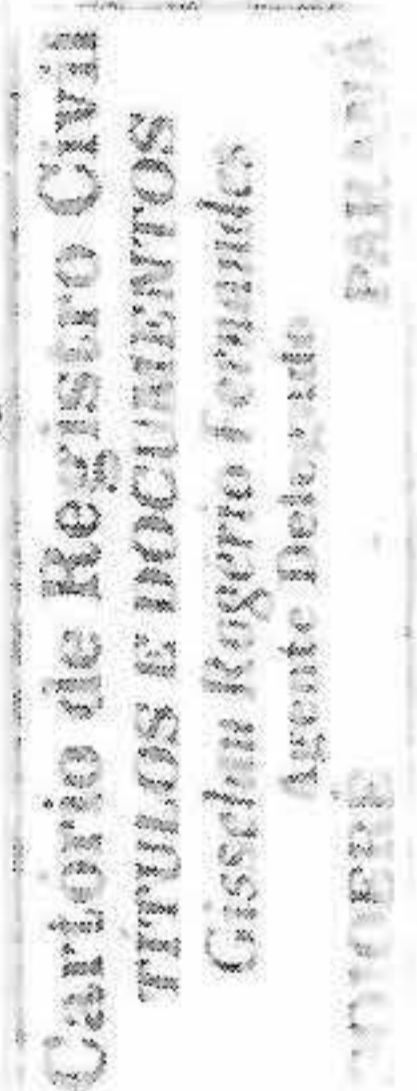 Cartorio de Registro Civil
TITULOS E DOCUMENTOS
Rogerio Fernandes
Agente Delegado
PARANÁ